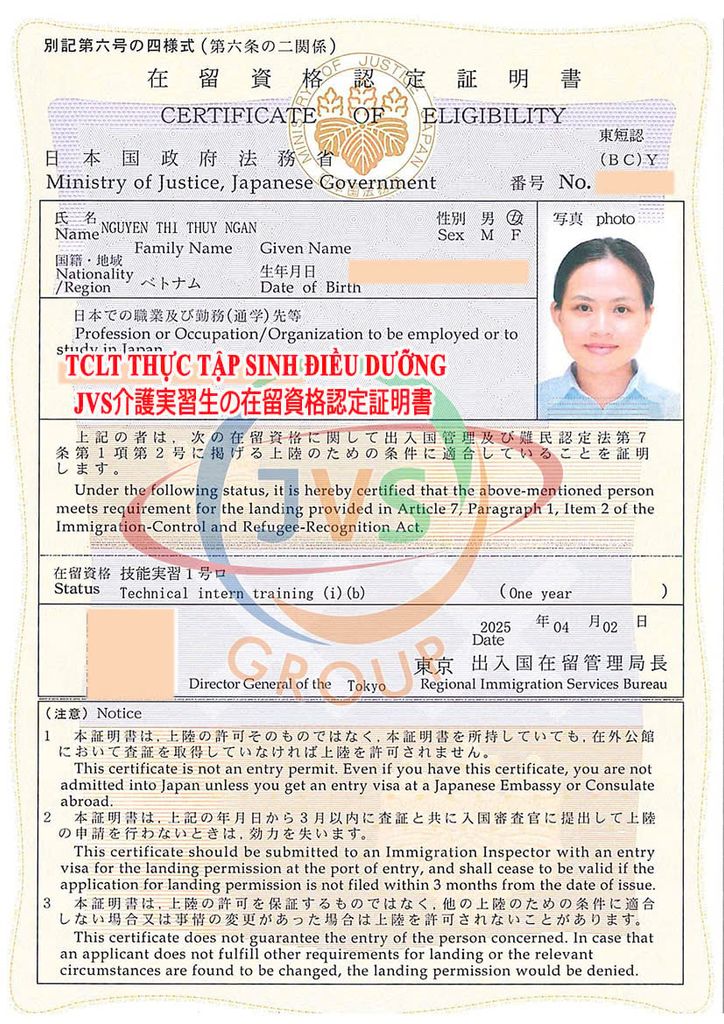 別記第六号の四様式(第六条の二関係)
在留資格認定証明書
CERTIFICATE OF ELIGIBILITY
MINISTRY OF JUSTICE JAPAN
東短認
日本国政府法務省
(BC)Y
Ministry of Justice, Japanese Government
番号 No.
氏名
Name NGUYEN THI THUY NGAN
Family Name Given Name
性別 男 女
Sex M F
写真 photo
国籍・地域
Nationality
/Region ベトナム
生年月日
Date of Birth
日本での職業及び勤務(通学)先等
Profession or Occupation/Organization to be employed or to
study in Japan
TCLT THỰC TẬP SINH ĐIỀU DƯỠNG
JVS介護実習生の在留資格認定証明書
上記の者は、次の在留資格に関して出入国管理及び難民認定法第7
条第1項第2号に掲げる上陸のための条件に適合していることを証明
します。
Under the following status, it is hereby certified that the above-mentioned person
meets requirement for the landing provided in Article 7, Paragraph 1, Item 2 of the
Immigration-Control and Refugee-Recognition Act.
JVS
GROUP
在留資格 技能実習1号ロ
Status Technical intern training (i)(b)
(One year )
2025 年 04 月 02 日
Date
東京 出入国在留管理局長
Director General of the Tokyo Regional Immigration Services Bureau
(注意) Notice
1 本証明書は、上陸の許可そのものではなく、本証明書を所持していても、在外公館
において査証を取得していなければ上陸を許可されません。
This certificate is not an entry permit. Even if you have this certificate, you are not
admitted into Japan unless you get an entry visa at a Japanese Embassy or Consulate
abroad.
2 本証明書は、上記の年月日から3月以内に査証と共に入国審査官に提出して上陸
の申請を行わないときは、効力を失います。
This certificate should be submitted to an Immigration Inspector with an entry
visa for the landing permission at the port of entry, and shall cease to be valid if the
application for landing permission is not filed within 3 months from the date of issue.
3 本証明書は、上陸の許可を保証するものではなく、他の上陸のための条件に適合
しない場合又は事情の変更があった場合は上陸を許可されないことがあります。
This certificate does not guarantee the entry of the person concerned. In case that
an applicant does not fulfill other requirements for landing or the relevant
circumstances are found to be changed, the landing permission would be denied.